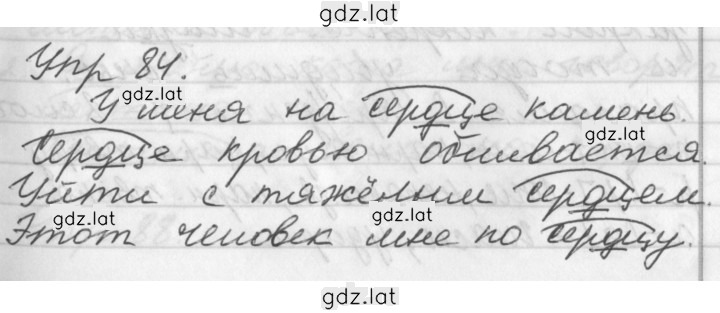 gdz.lat
Упр 84.
gdz.lat
У меня на сердце камень.
gdz.lat
Сердце кровью обливается.
Уйти с тяжёлым сердцем.
gdz.lat
gdz.lat
Этот человек мне по сердцу.
gdz.lat